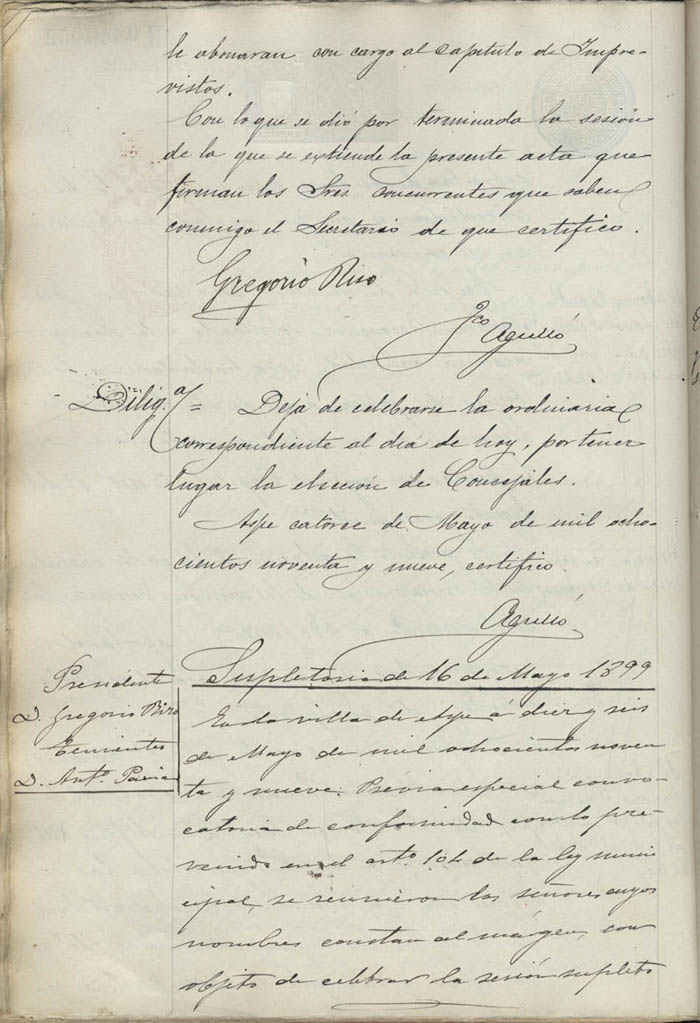 le abonaran con cargo al Capitulo de Impre-
vistos.
Con lo que se dió por terminada la sesión
de la que se extiende la presente acta que
firman los Sres. concurrentes que saben
conmigo el Secretario de que certifico.
Gregorio Rizo
Fco Agulló
Dilig.a = Deja de celebrarse la ordinaria
correspondiente al dia de hoy, por tener
lugar la elección de Concejales.
Aspe catorce de Mayo de mil ocho-
cientos noventa y nueve, certifico.
Agulló
Supletoria de 16 de Mayo 1899
Presidente
D. Gregorio Rizo
Tenientes
D. Anto. Pavia
En la villa de Aspe á diez y seis
de Mayo de mil ochocientos noven
ta y nueve: Prévia especial convo-
catoria de conformidad con lo pre-
venido en el arto. 104 de la ley muni
cipal, se reunieron los señores cuyos
nombres constan al márgen, con
objeto de celebrar la sesión supleto